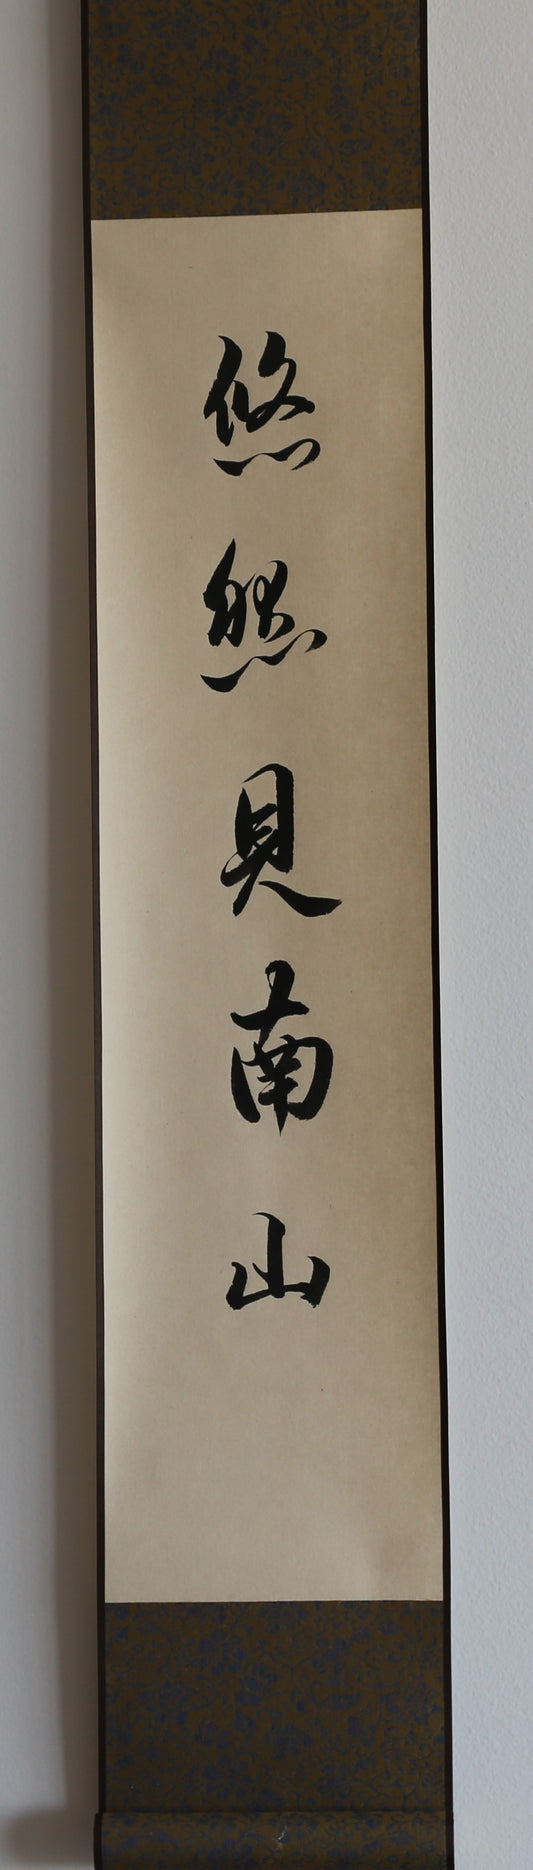 悠然見南山